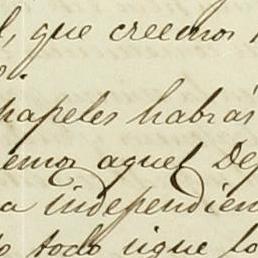 l, que creemos
papeles habrás
emos aquel De
a independien
todo sigue lo